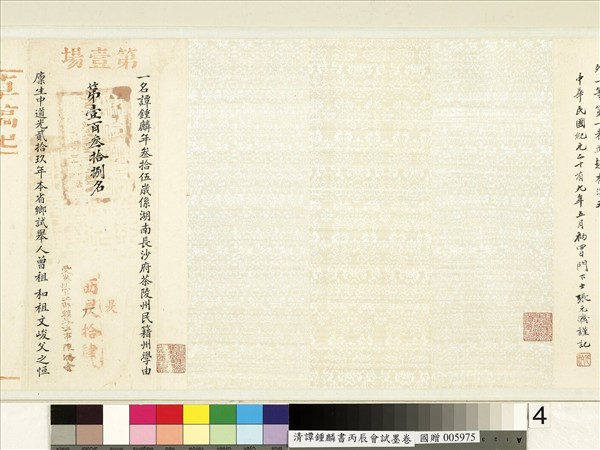 中華民國紀元二十有九年五月初四門下士張元濟謹記
第壹場
一名譚鍾麟年叄拾伍歲係湖南長沙府茶陵州民籍州學由
第壹百叄拾捌名
廩生中道光貳拾玖年本省鄉試舉人曾祖 和祖文峻父之恒
草稿起
清譚鍾麟書丙辰會試墨卷
國贈 005975
4